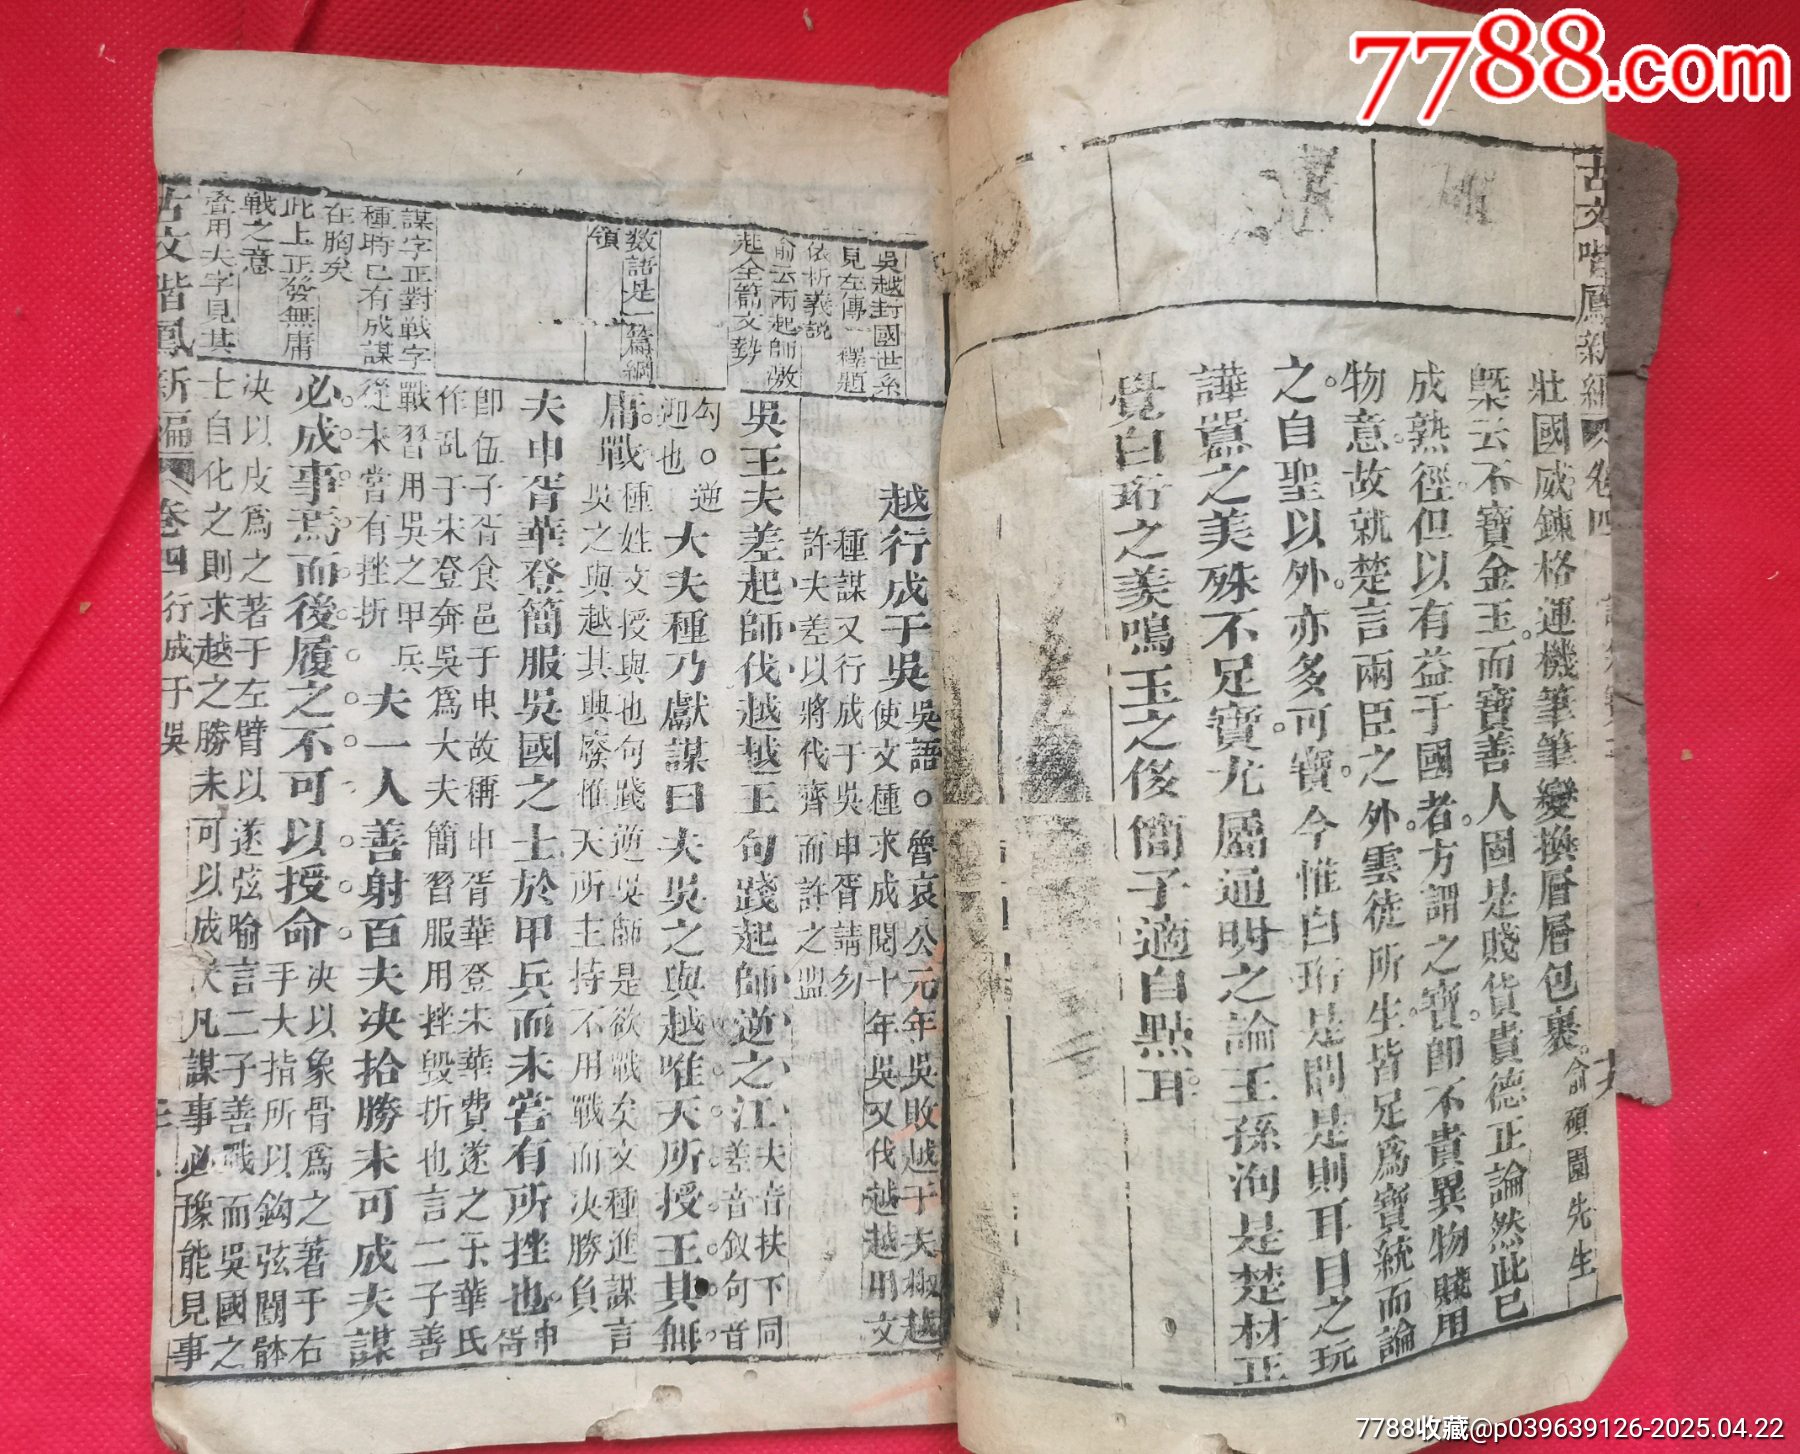 7788.com
古文喈鳳新編
卷四
壯國威鍊格運機筆筆變換層層包裹俞碩園先生
槩云不寶金玉而寶善人固是賤貨貴德正論然此已
成熟徑但以有益于國者方謂之寶卽不貴異物賤用
物意故就楚言兩臣之外雲徒所生皆足爲寶統而論
之自聖以外亦多可寶今惟白珩是問是則耳目之玩
譁囂之美殊不足寶尤屬通明之論王孫洵是楚材正
覺白珩之美鳴玉之侈簡子適自點耳
吳越封國世系
見左傳一釋題
依析義説
俞云兩起師激
起全篇文勢
数語是一篇綱
領
謀字正對戦字
種時已有成謀
在胸矣
此上正發無庸
戰之意
叠用夫字見其
越行成于吳吳語。魯哀公元年吳敗越于夫椒越
使文種求成閱十年吳又伐越越用文
種謀又行成于吳申胥請勿
許夫差以將代齊而許之盟
吳王夫差起師伐越越王句踐起師逆之江夫音扶下同
差音釵句音
勾。逆
迎也
大夫種乃獻謀曰夫吳之與越唯天所授王其無
庸戰種姓文授與也句踐逆吳師是欲戰矣文種進謀言
吳之與越其興廢惟天所主持不用戰而决勝負
夫申胥華登簡服吳國之士於甲兵而未嘗有所挫也申
胥
卽伍子胥食邑于申故稱申胥華登宋華費遂之子華氏
作乱于宋登奔吳爲大夫簡習服用挫毁折也言二子善
戰習用吳之甲兵
從未嘗有挫折
夫一人善射百夫决拾勝未可成夫謀
必成事焉而後履之不可以授命决以象骨爲之著于右
手大指所以鈎弦闓體
决以皮爲之著于左臂以遂弦喻言二子善戰而吳國之
士自化之則求越之勝未可以成
夫凡謀事必豫能見事
古文喈鳳新編
卷四
行成于吳
7788收藏@p039639126-2025.04.22